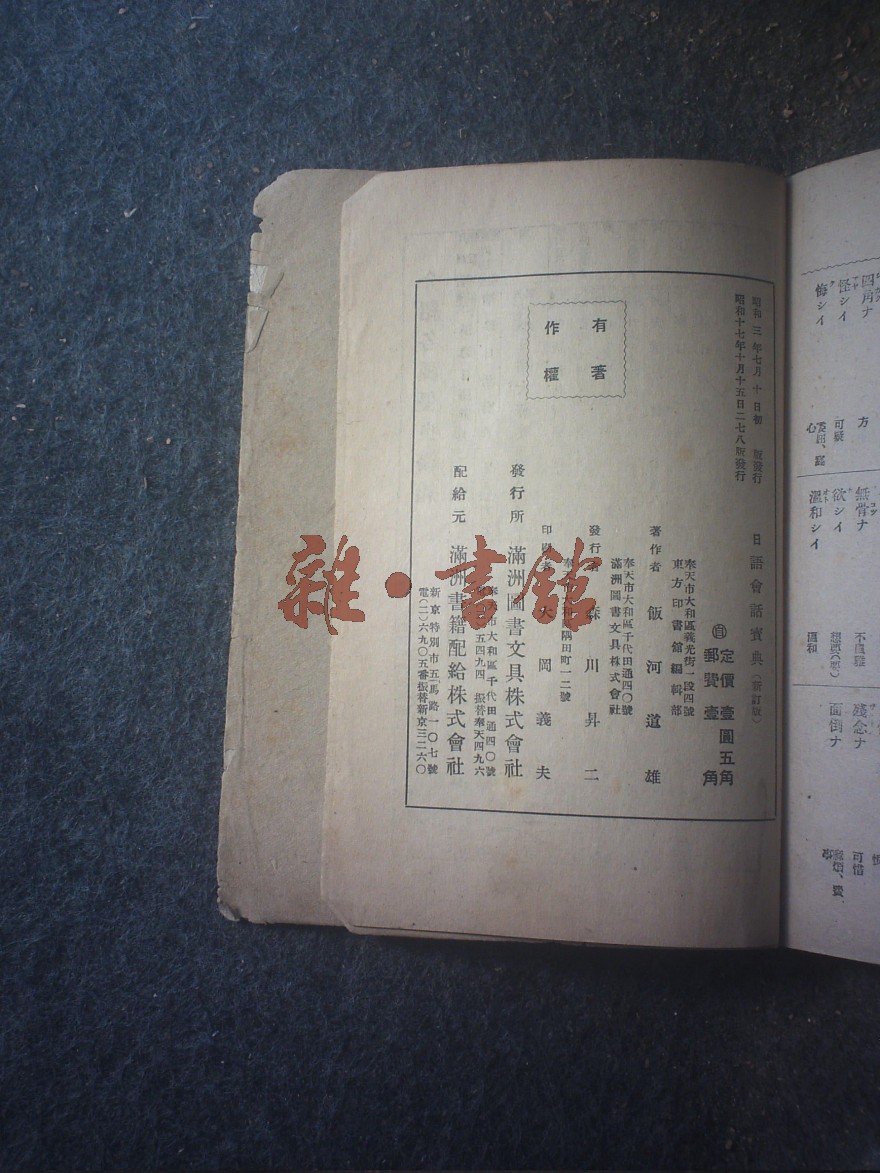 四角ナ
怪シイ
悔シイ
方
可疑
心
無骨ナ
欲シイ
溫和シイ
不風雅
溫和
殘念ナ
面倒ナ
可惜
昭和三年七月十日初版發行
昭和十七年十月十五日二七八版發行
有著
作權
日語會話寶典（新訂版）
定價壹圓五角
郵費壹角
奉天市大和區義光街一段四號
東方印書館編輯部
著作者 飯河道雄
奉天市大和區千代田通四〇號
滿洲圖書文具株式會社
發行者 森川昇二
奉天市大和區隅田町一二號
印刷者 大岡義夫
發行所 滿洲圖書文具株式會社
奉天市大和區千代田通四〇號
五四九四 振替奉天四九六
配給元 滿洲書籍配給株式會社
新京特別市五馬路一〇七號
電(二)六九〇五番振替新京三二六〇
雜·書館